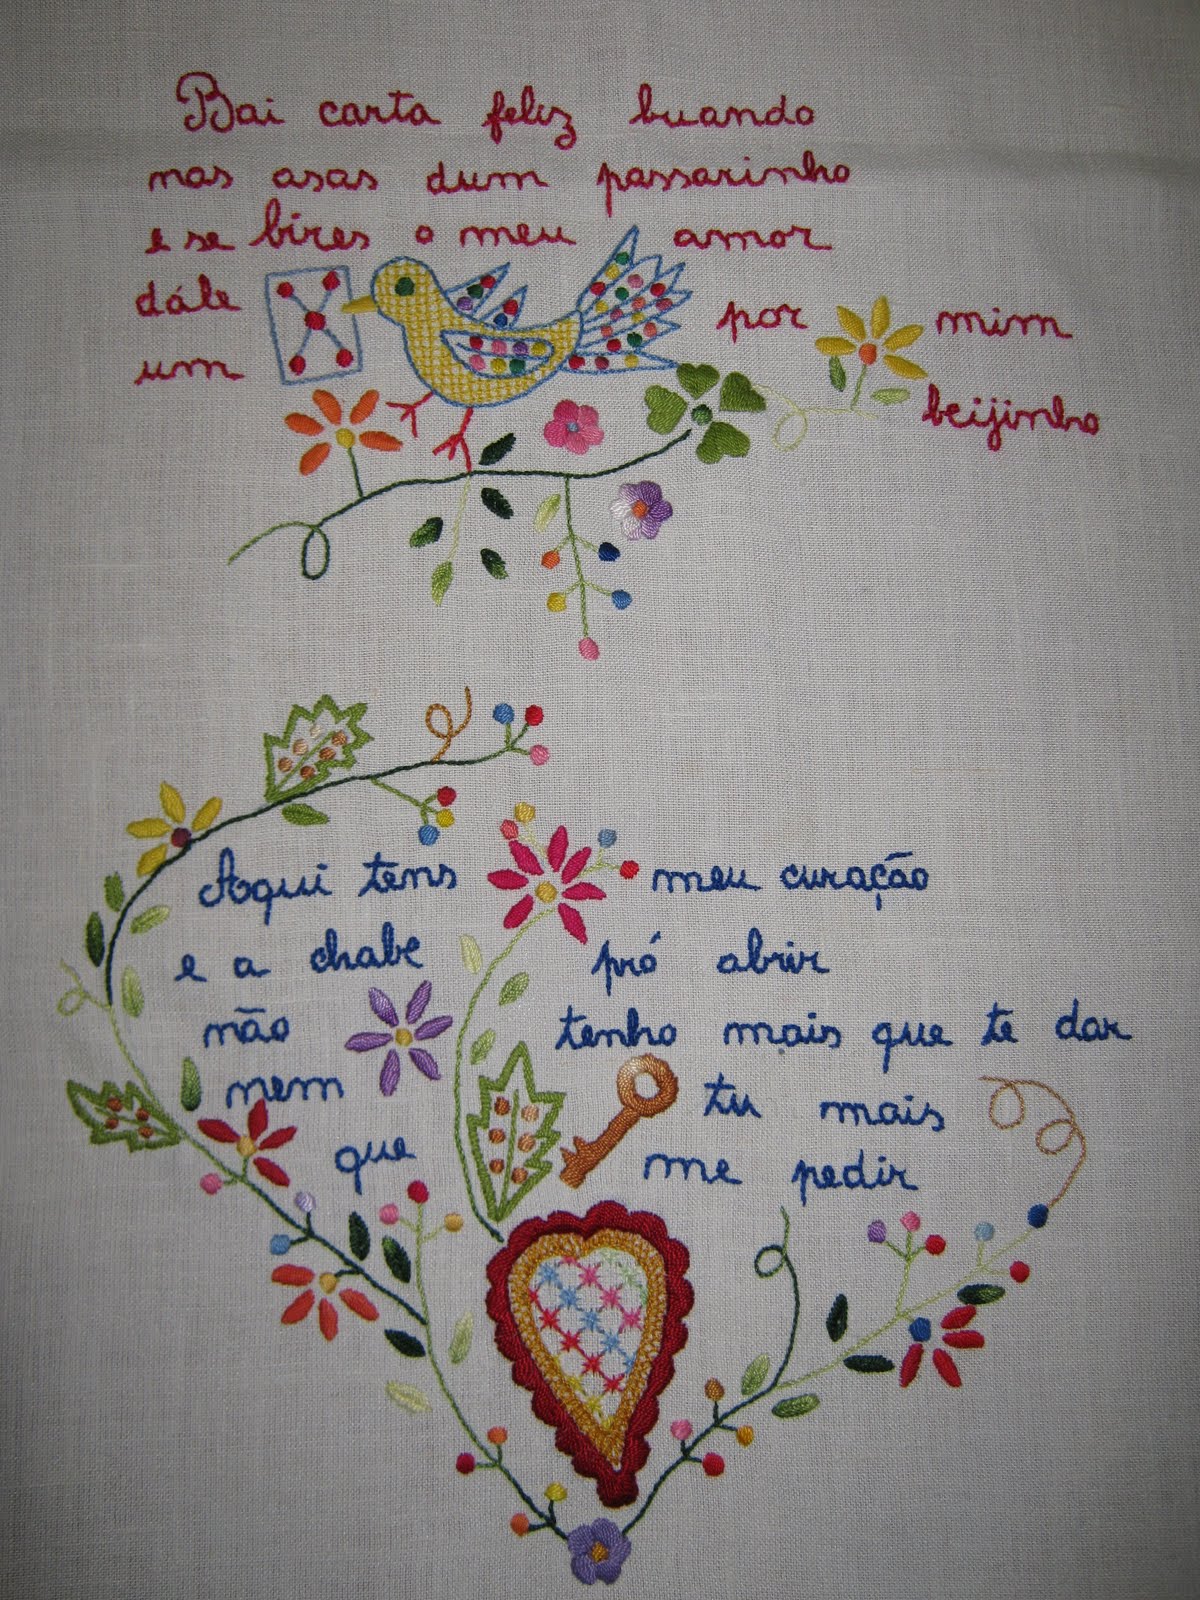 Bai carta feliz buando
nas asas dum passarinho
e se bires o meu amor
dále por mim
um beijinho
Aqui tens meu curação
e a chabe pró abrir
não tenho mais que te dar
nem tu mais
que me pedir